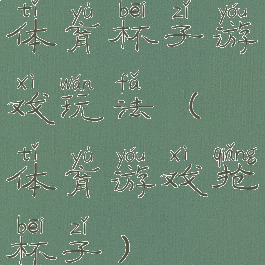 tǐ yù bēi zǐ yóu
体育杯子游
xì wán fǎ
戏玩法（
tǐ yù yóu xì qiǎng
体育游戏抢
bēi zǐ
杯子）